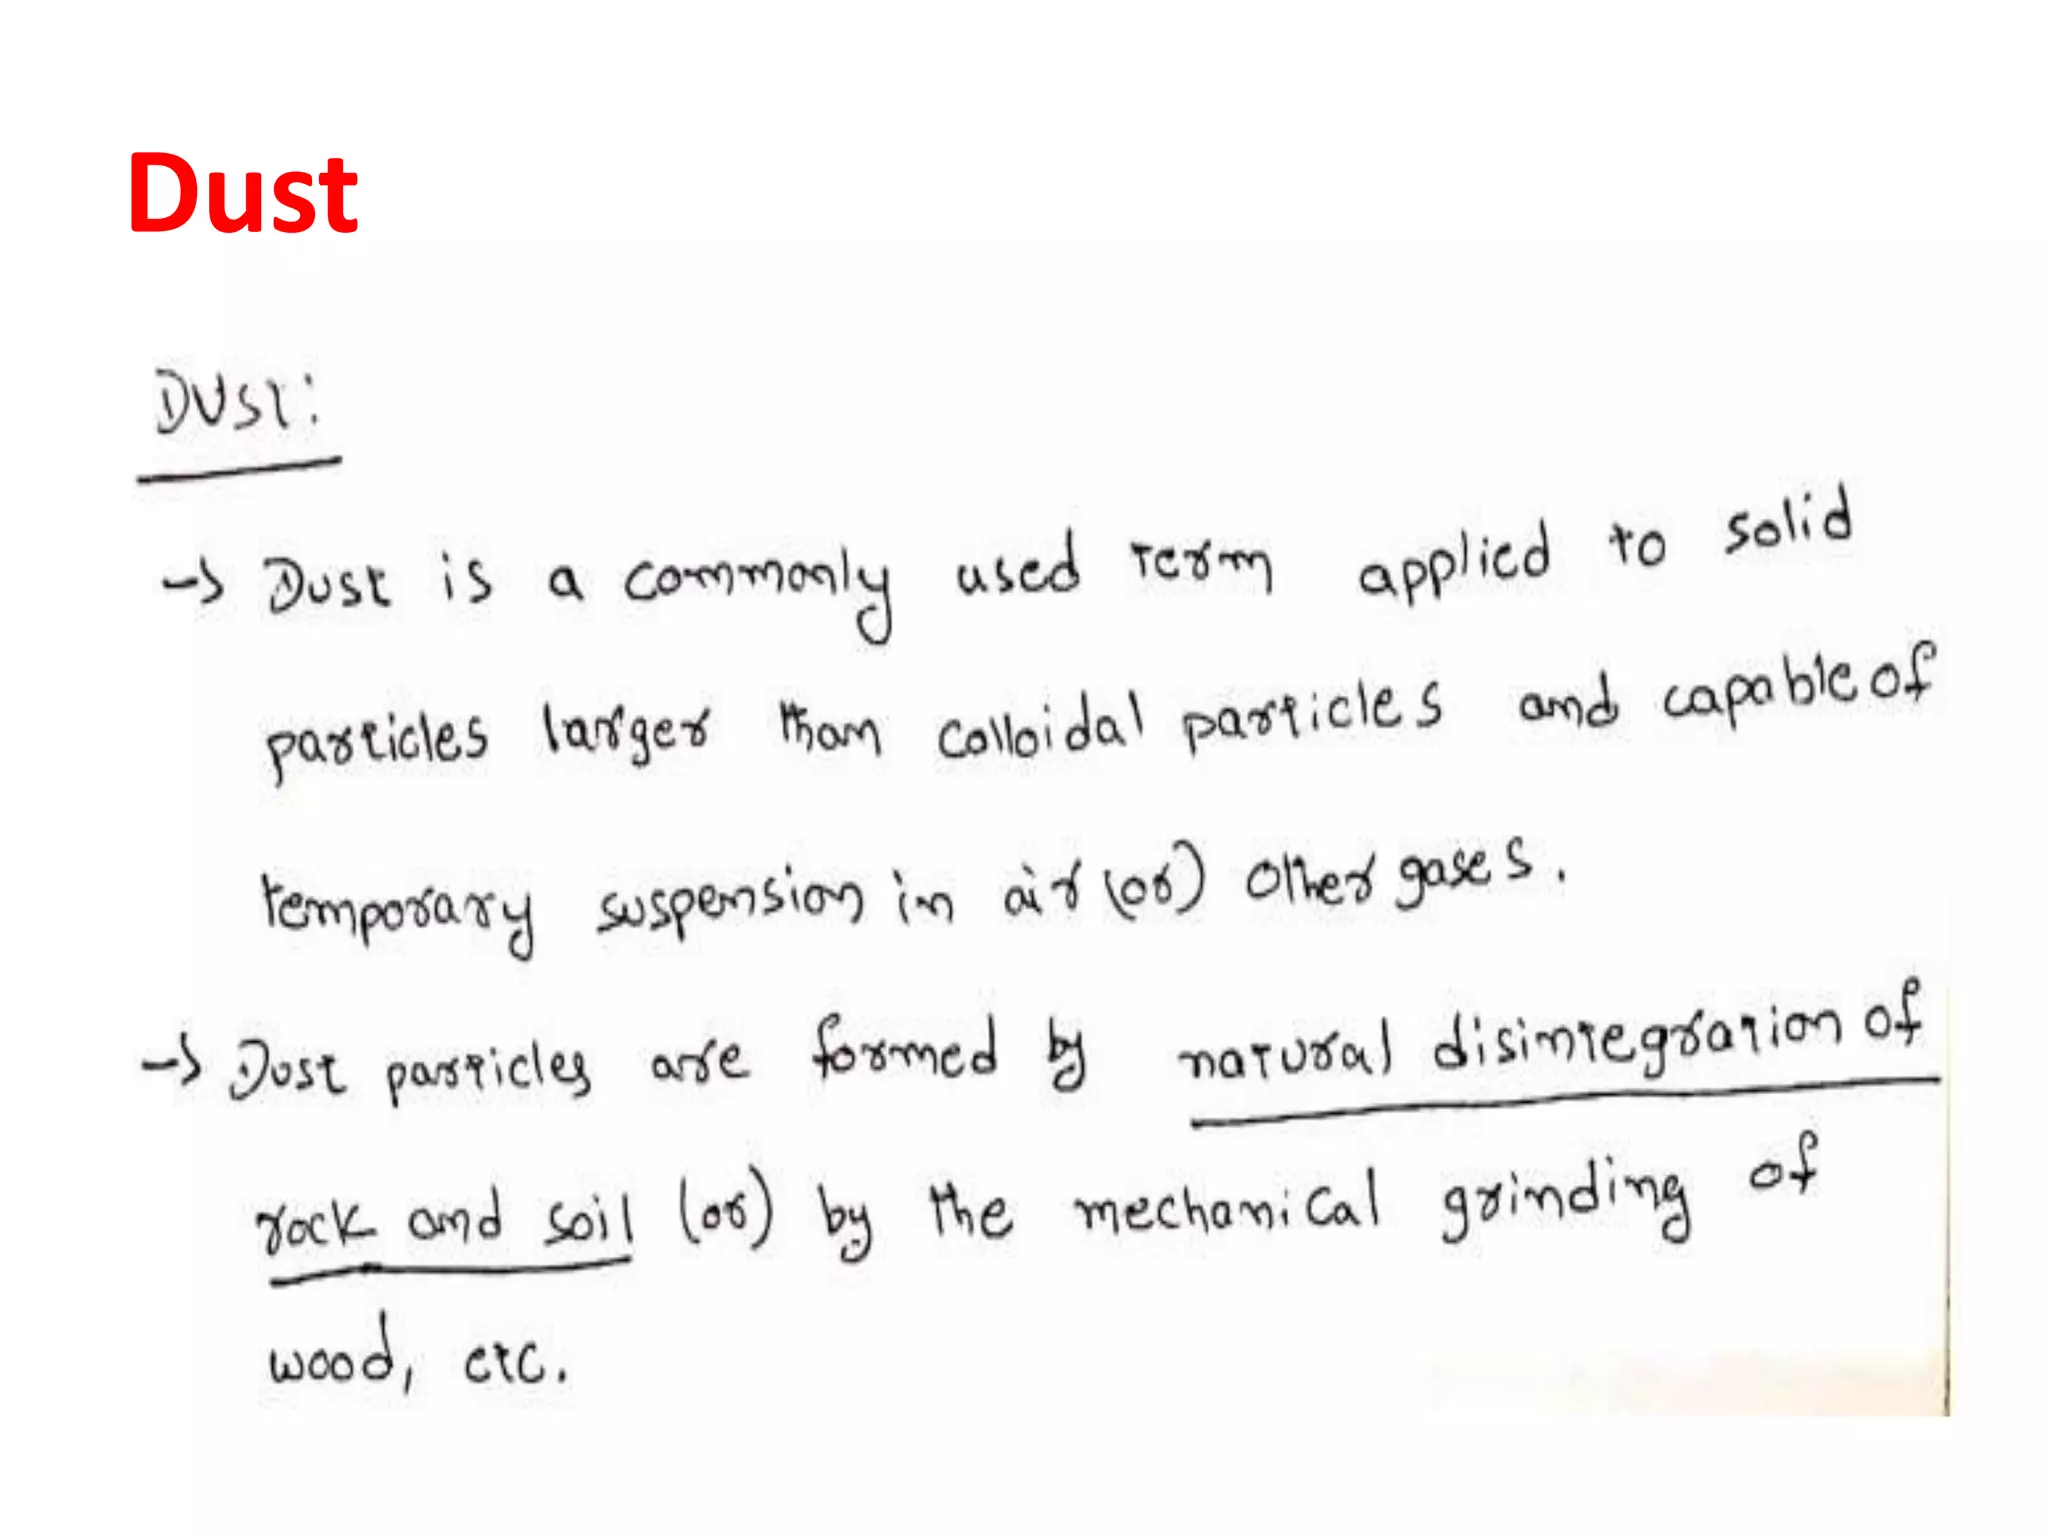 Dust
DUST:
→ Dust is a commonly used term applied to solid
particles larger than colloidal particles and capable of
temporary suspension in air (or) other gases.
→ Dust particles are formed by natural disintegration of
rock and soil (or) by the mechanical grinding of
wood, etc.